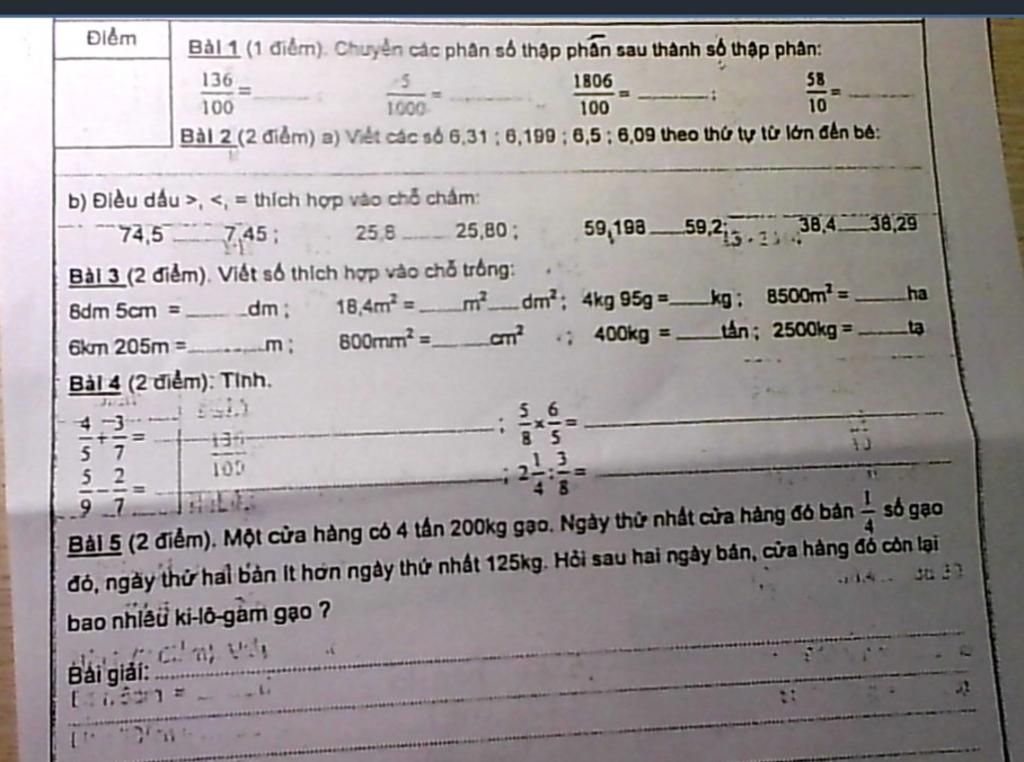 Điểm
Bài 1 (1 điểm). Chuyển các phân số thập phân sau thành số thập phân:
136/100 = ........ ; 5/1000 = ........ 1806/100 = ........ ; 58/10 = ........
Bài 2 (2 điểm) a) Viết các số 6,31 ; 6,199 ; 6,5 ; 6,09 theo thứ tự từ lớn đến bé:
b) Điều dấu >, <, = thích hợp vào chỗ chấm:
74,5 ........ 7,45 ; 25,8 ........ 25,80 ; 59,198 ........ 59,2; 38,4 ........ 38,29
Bài 3 (2 điểm). Viết số thích hợp vào chỗ trống:
8dm 5cm = ........ dm ; 18,4m² = ........ m² ........ dm² ; 4kg 95g = ........ kg ; 8500m² = ........ ha
6km 205m = ........ m ; 800mm² = ........ cm² ; 400kg = ........ tấn ; 2500kg = ........ tạ
Bài 4 (2 điểm): Tính.
4/5 + 3/7 = ........ ; 5/8 × 6/5 = ........
5/9 - 2/7 = ........ ; 2 1/4 : 3/8 = ........
Bài 5 (2 điểm). Một cửa hàng có 4 tấn 200kg gạo. Ngày thứ nhất cửa hàng đó bán 1/4 số gạo
đó, ngày thứ hai bán ít hơn ngày thứ nhất 125kg. Hỏi sau hai ngày bán, cửa hàng đó còn lại
bao nhiêu ki-lô-gam gạo ?
Bài giải: